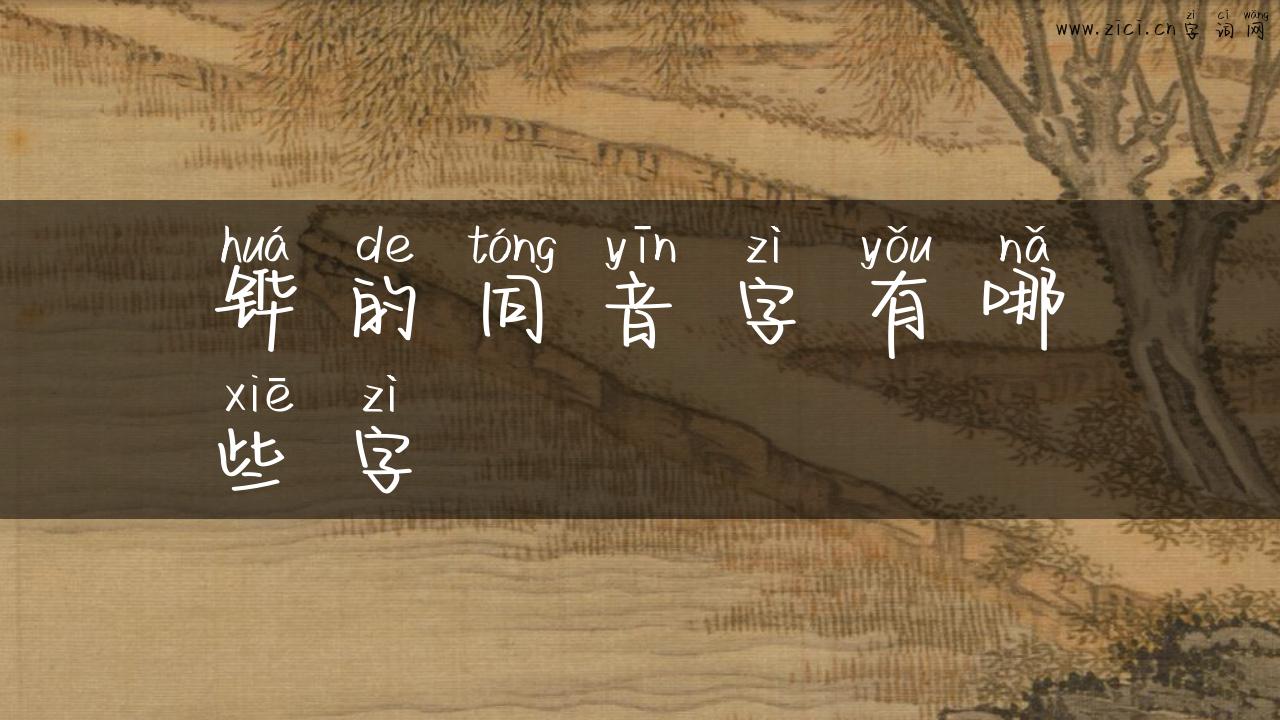 zì cí wǎng
www.zici.cn字词网
huá de tóng yīn zì yǒu nǎ
铧的同音字有哪
xiē zì
些字